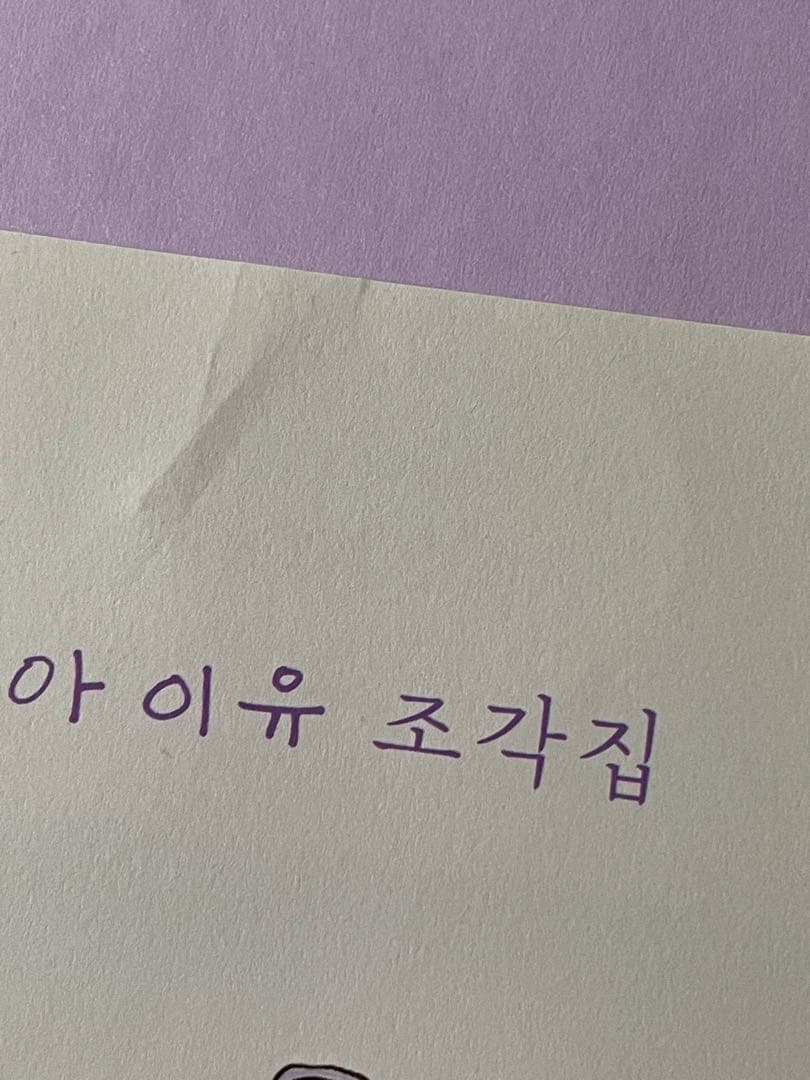 아이유 조각집